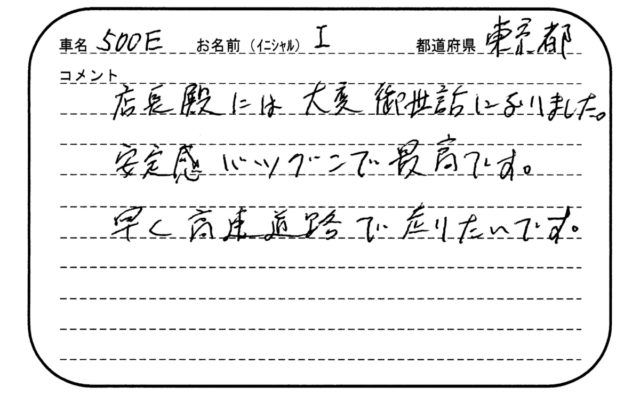 車名 500E お名前(イニシャル) I 都道府県 東京都
コメント
店長殿には大変御世話になりました。
安定感バツグンで最高です。
早く高速道路で走りたいです。